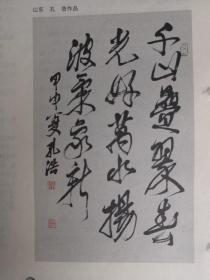 山东 孔 浩作品
千山叠翠春
光好万水扬
波气象新
甲申夏孔浩